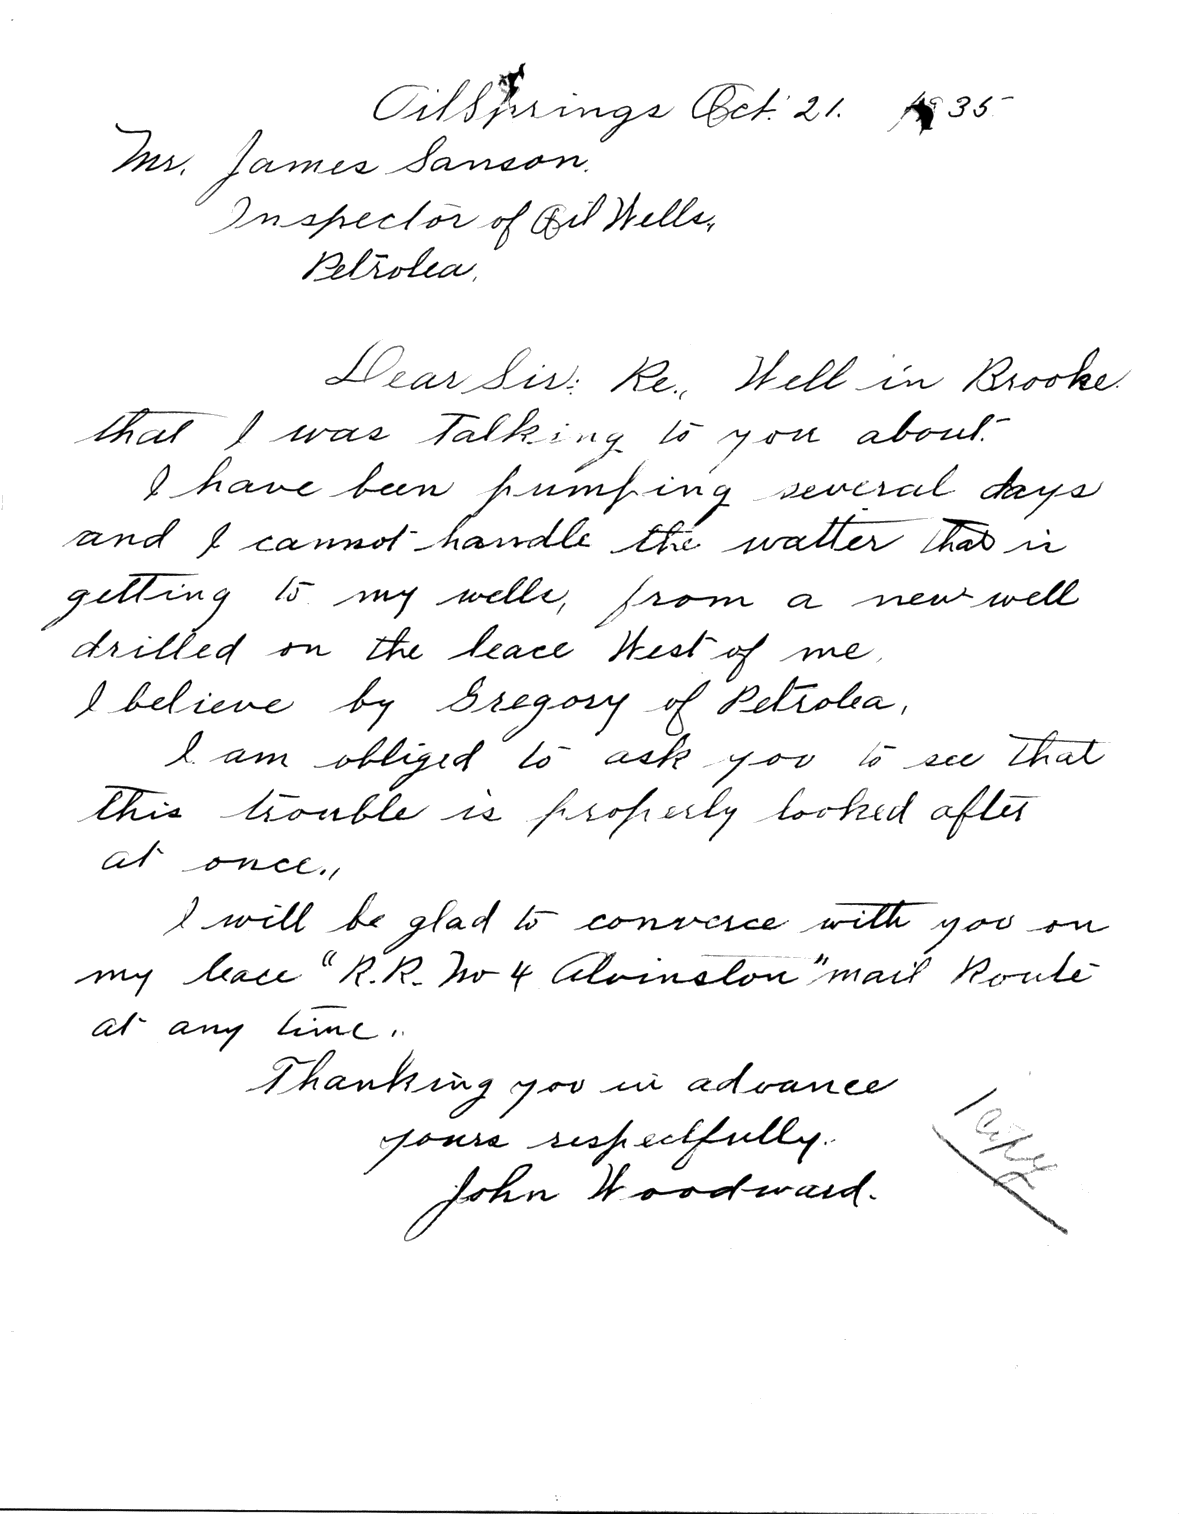 Oil Springs Oct. 21. 1935
Mr. James Sanson.
Inspector of Oil Wells,,
Petrolea.
Dear Sir: Re., Well in Brooke.
that I was talking to you about.
I have been pumping several days
and I cannot handle the watter that is
getting to my wells, from a new well
drilled on the leace West of me.
I believe by Gregory of Petrolea,
I am obliged to ask you to see that
this trouble is properly looked after
at once.,
I will be glad to converce with you on
my leace "R.R. No 4 Alvinston" mail Route
at any time..
Thanking you in advance
yours respectfully.
John Woodward.
Copy